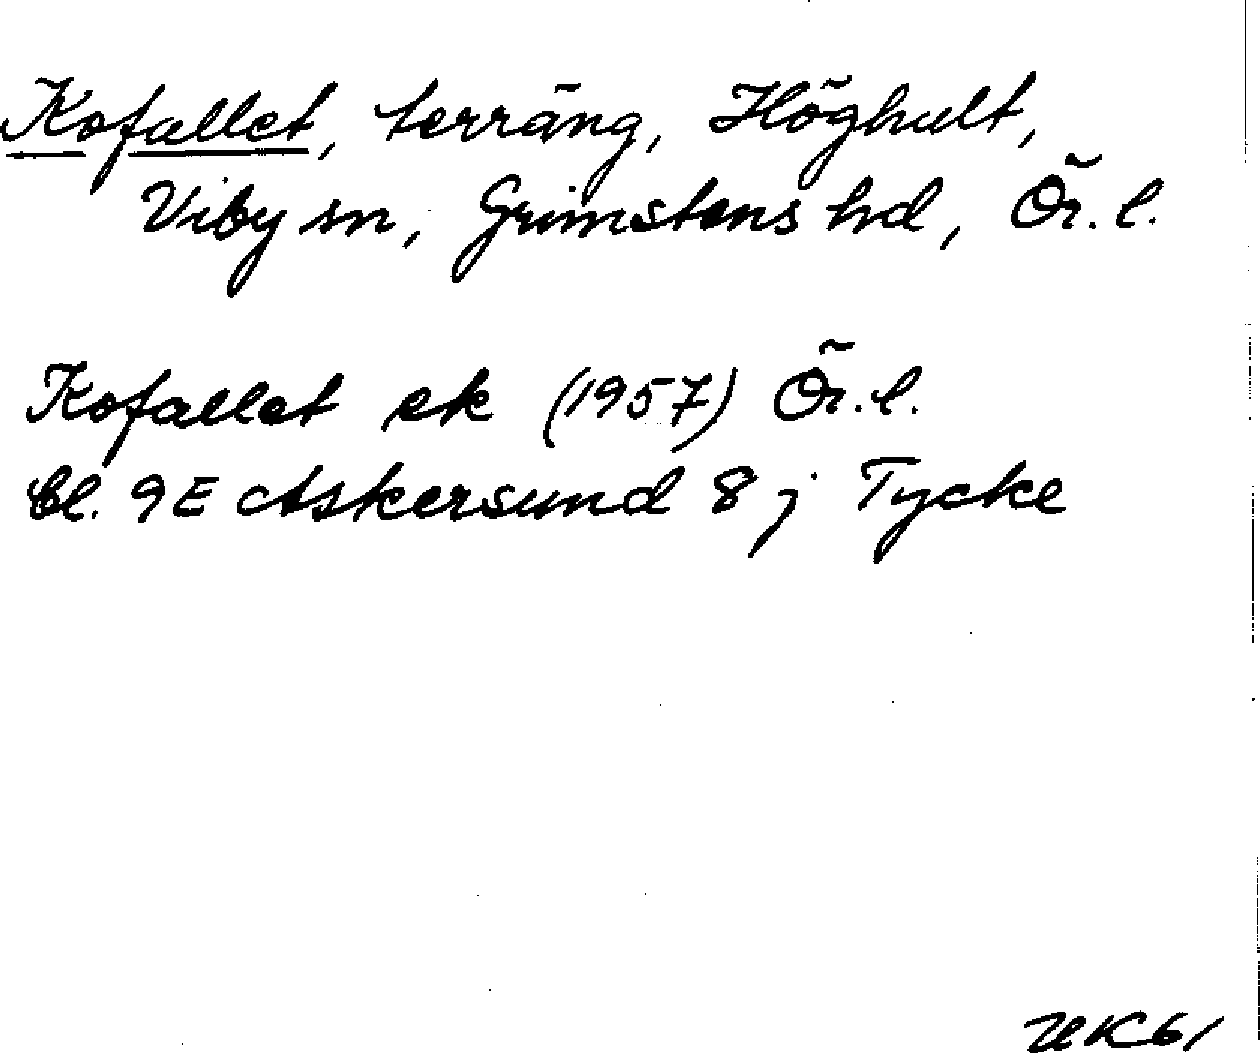 Kofallet, terräng, Höghult,
Viby sn, Grimstens hd, Ör. l.
Kofallet ek (1957) Ör. l.
bl. 9E Askersund 8j Tycke
UK61